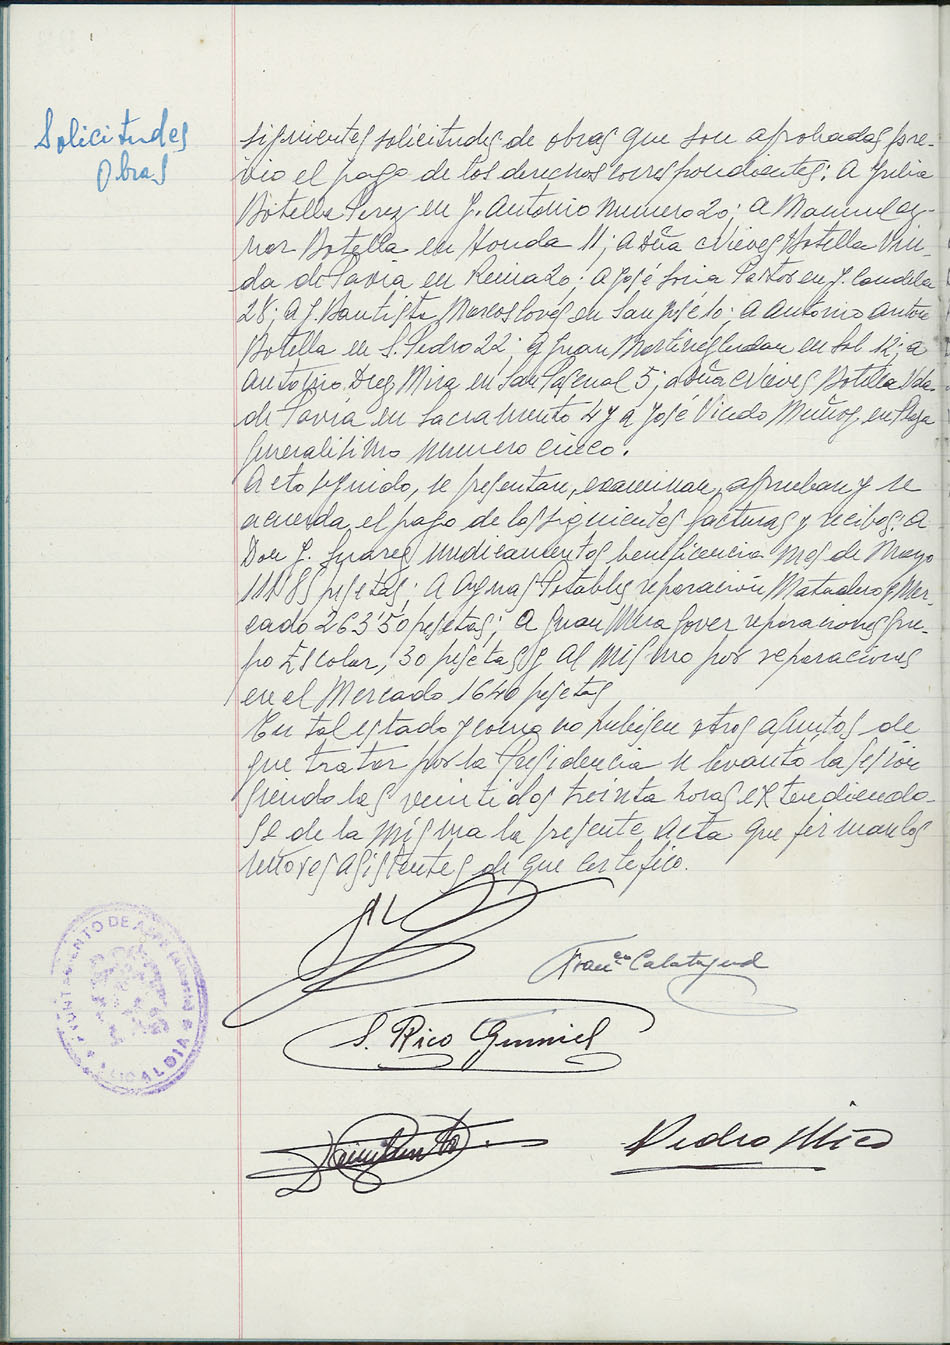 Solicitudes
Obras
siguientes solicitudes de obras que son aprobadas pre-
vio el pago de los derechos correspondientes: A Julia
Botella Perez en J. Antonio numero 20; a Manuel
Botella en Honda 11; a Dña Nieves Botella Viu-
da de Pavia en Reina 20; a José Soria Pastor en J. Candela
28; a J. Bautista en San José 10; a Antonio Anton
Botella en S. Pedro 22; a Juan Martinez en Sol 12; a
Antonio Diez Mira en San Pascual 5; a Dña Nieves Botella Vda
de Pavia en Sacramento 4 y a José Vicedo Muñoz en Plaza
Generalisimo numero cinco.
Acto seguido, se presentan, examinan, aprueban y se
acuerda el pago de los siguientes facturas y recibos: A
Don J. Suarez medicamentos beneficencia mes de Mayo
pesetas; A Aguas Potables reparación Matadero y Mer-
cado 263'50 pesetas; A Juan Mira Jover reparaciones gru-
po Escolar, 30 pesetas y al mismo por reparaciones
en el Mercado 1640 pesetas
En tal estado y como no hubiesen otros asuntos de
que tratar por la Presidencia se levantó la sesión
siendo las veintidos treinta horas extendiendo-
se de la misma la presente acta que firman los
señores asistentes de que certifico.
Fran.co Calatayud
S. Rico
Pedro Mico
AYUNTAMIENTO DE ASPE (Alicante)
ALCALDIA